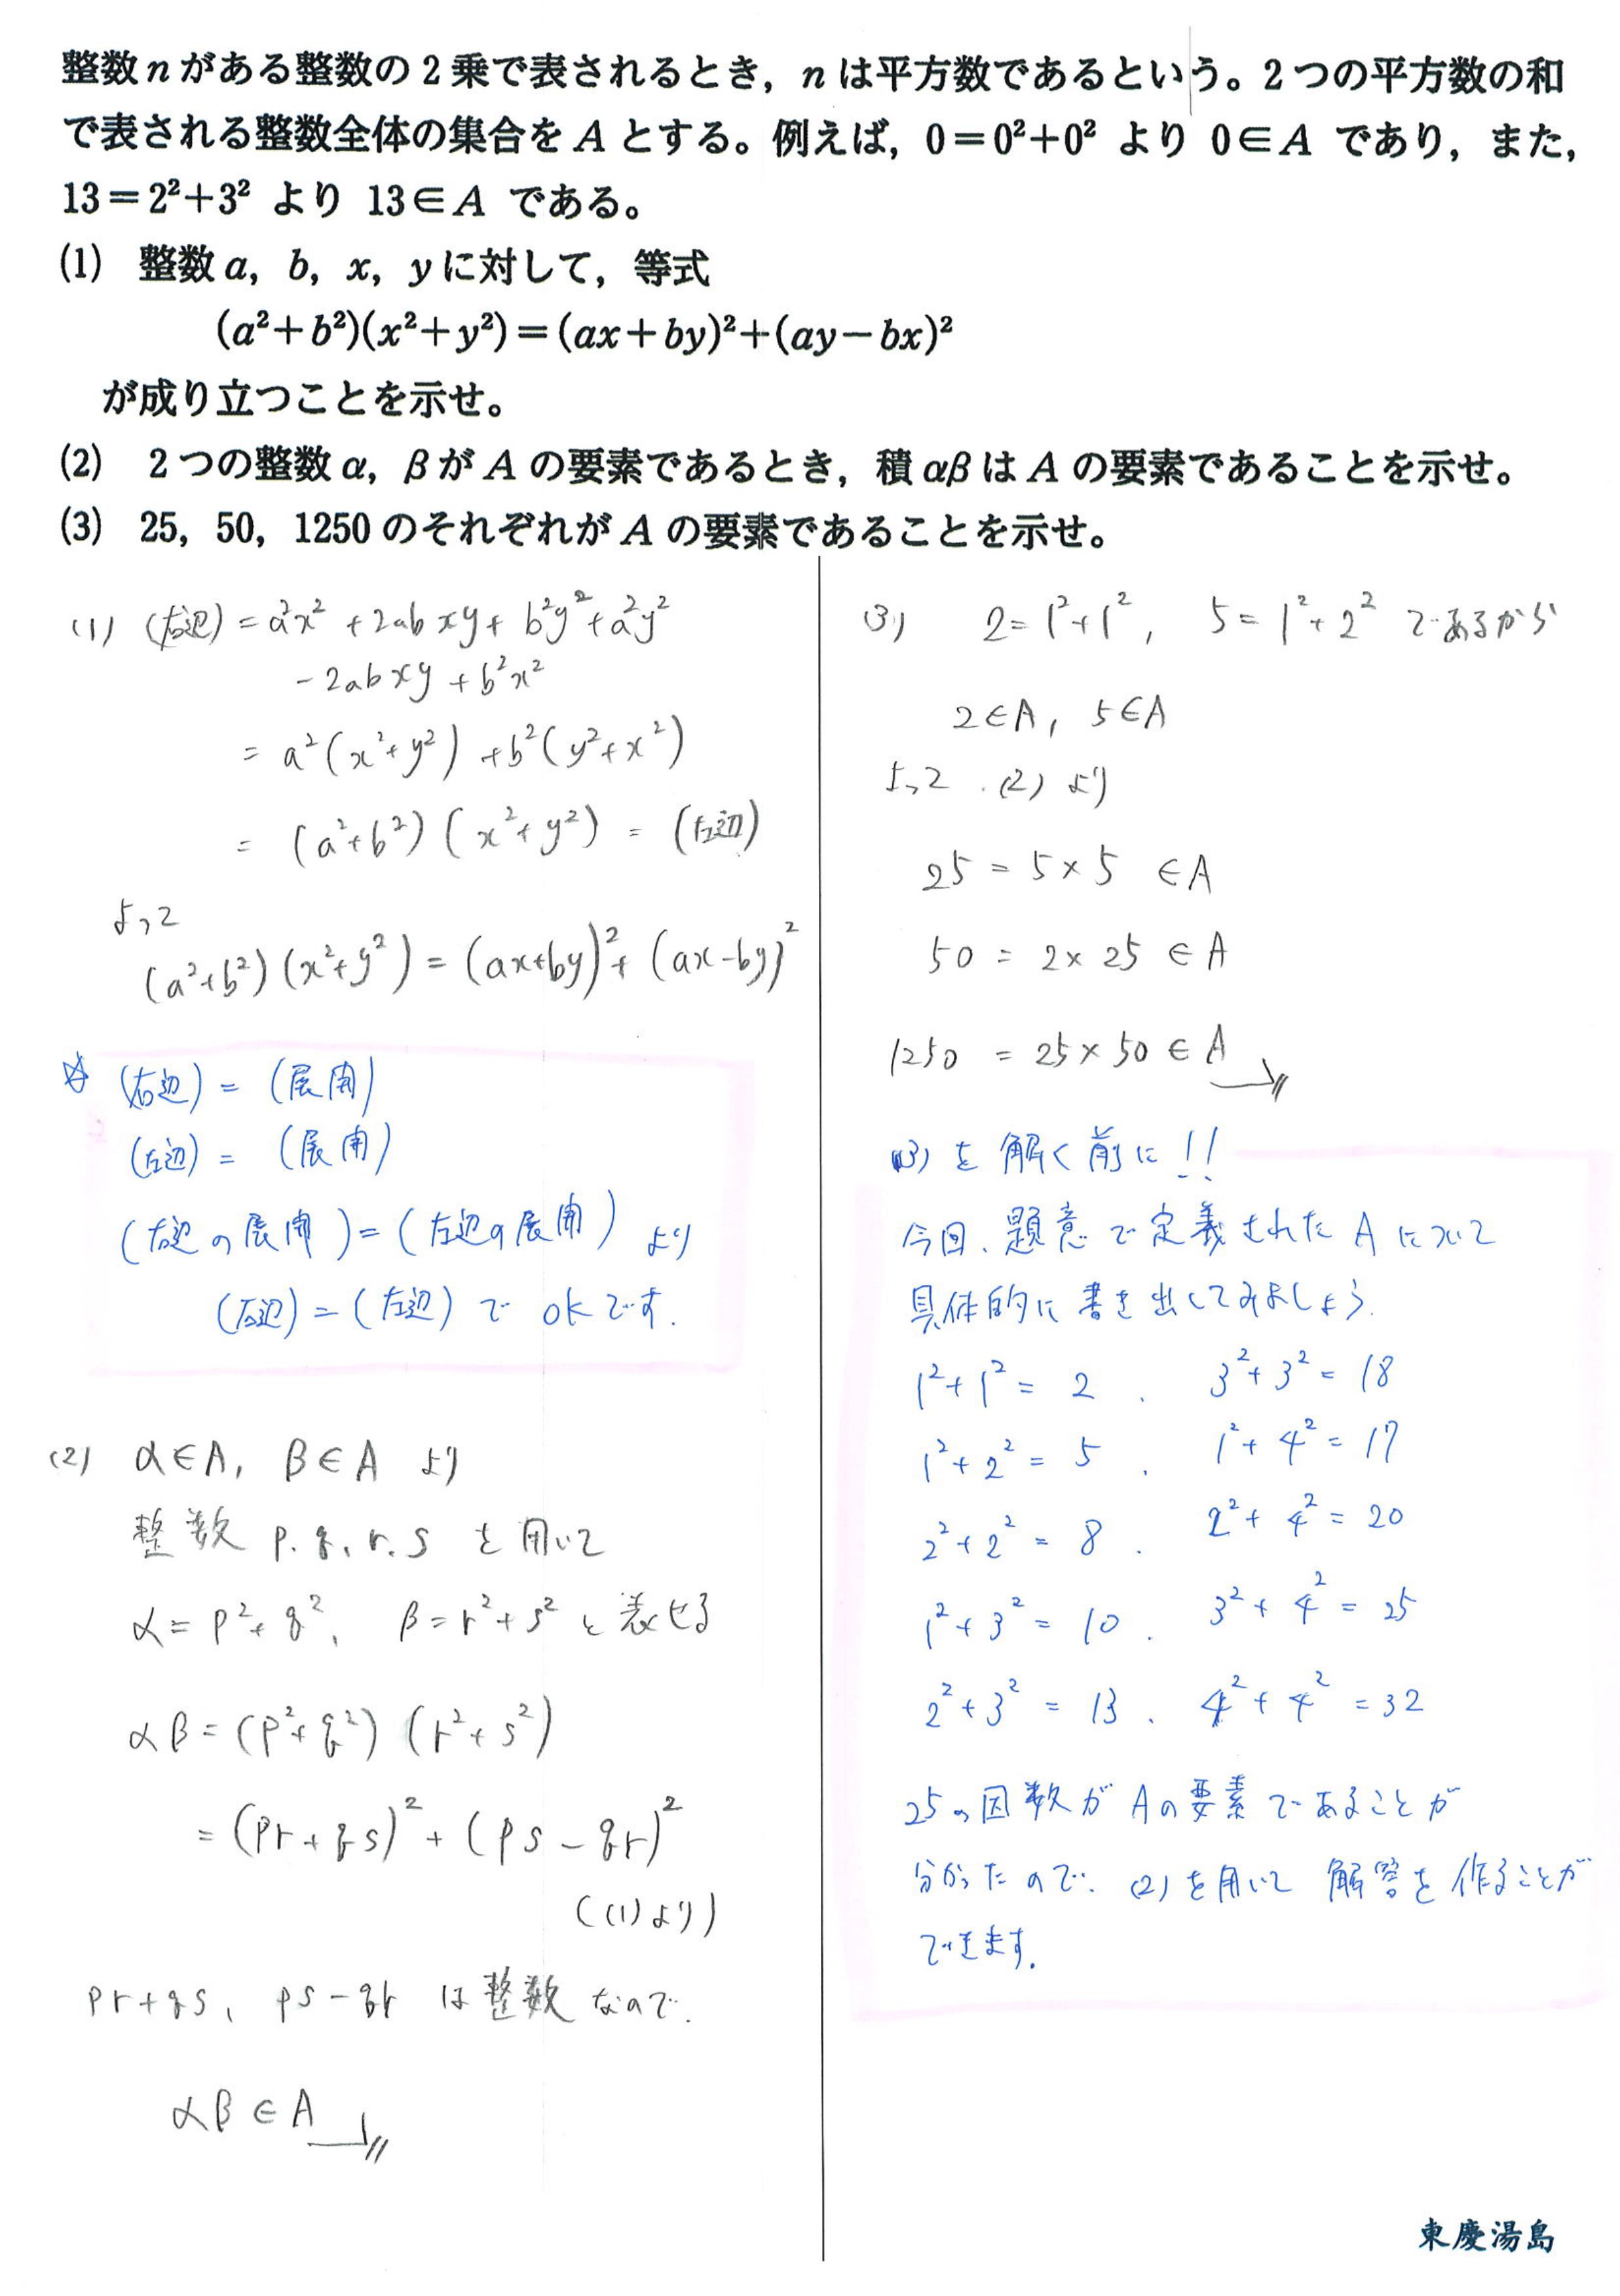 整数nがある整数の2乗で表されるとき，nは平方数であるという。2つの平方数の和
で表される整数全体の集合をAとする。例えば，0＝0²+0² より 0∈A であり，また，
13＝2²+3² より 13∈A である。
(1) 整数a，b，x，yに対して，等式
(a²+b²)(x²+y²)＝(ax+by)²+(ay－bx)²
が成り立つことを示せ。
(2) 2つの整数α，βがAの要素であるとき，積αβはAの要素であることを示せ。
(3) 25，50，1250のそれぞれがAの要素であることを示せ。
(1) (右辺) = a²x² + 2abxy + b²y² + a²y²
- 2abxy + b²x²
= a²(x²+y²) + b²(y²+x²)
= (a²+b²)(x²+y²) = (左辺)
よって
(a²+b²)(x²+y²) = (ax+by)² + (ax-by)²
☆ (右辺) = (展開)
(左辺) = (展開)
(右辺の展開) = (左辺の展開) より
(右辺) = (左辺) で okです.
(2) α∈A, β∈A より
整数 p.q.r.s を用いて
α = p²+q², β = r²+s² と表せる
αβ = (p²+q²)(r²+s²)
= (pr+qs)² + (ps-qr)²
((1)より)
pr+qs, ps-qr は整数なので.
αβ∈A
(3) 2=1²+1², 5=1²+2² であるから
2∈A, 5∈A
よって.(2)より
25 = 5×5 ∈A
50 = 2×25 ∈A
1250 = 25×50 ∈A
(3)を解く前に!!
今回、題意で定義されたAについて
具体的に書き出してみましょう.
1²+1² = 2 . 3²+3² = 18
1²+2² = 5 . 1²+4² = 17
2²+2² = 8 . 2²+4² = 20
1²+3² = 10 . 3²+4² = 25
2²+3² = 13 . 4²+4² = 32
25の因数がAの要素であることが
分かったので. (2)を用いて解答を作ることが
できます.
東慶湯島